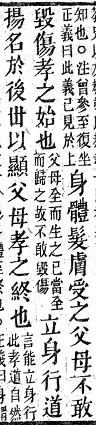 知也○注曾參至復坐
正義曰此義已見於上
身體髮膚受之父母不敢
毀傷孝之始也
父母全而生之己當全
而歸之故不敢毀傷
立身行道
揚名於後世以顯父母孝之終也
言能立身行
此孝道自然